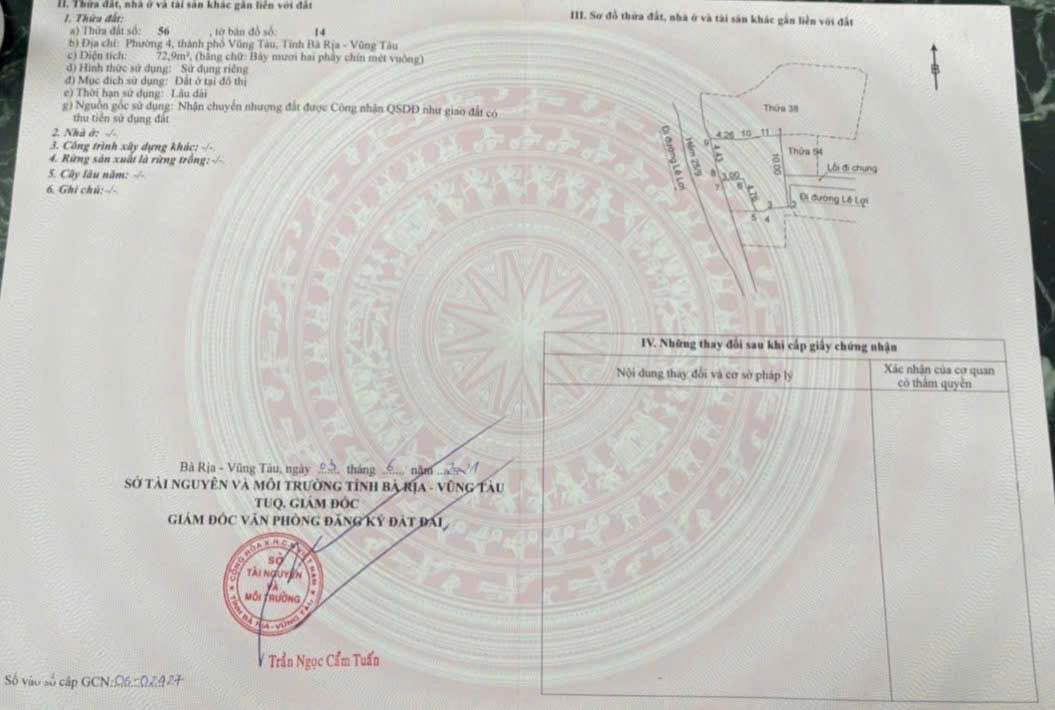 II. Thửa đất, nhà ở và tài sản khác gắn liền với đất
1. Thửa đất:
a) Thửa đất số: 56 , tờ bản đồ số: 14
b) Địa chỉ: Phường 4, thành phố Vũng Tàu, Tỉnh Bà Rịa - Vũng Tàu
c) Diện tích: 72,9m², (bằng chữ: Bảy mươi hai phẩy chín mét vuông)
d) Hình thức sử dụng: Sử dụng riêng
đ) Mục đích sử dụng: Đất ở tại đô thị
e) Thời hạn sử dụng: Lâu dài
g) Nguồn gốc sử dụng: Nhận chuyển nhượng đất được Công nhận QSDĐ như giao đất có
thu tiền sử dụng đất
2. Nhà ở: -/-
3. Công trình xây dựng khác: -/-
4. Rừng sản xuất là rừng trồng: -/-
5. Cây lâu năm: -/-
6. Ghi chú: -/-
Bà Rịa - Vũng Tàu, ngày 03 tháng 6 năm 2021
SỞ TÀI NGUYÊN VÀ MÔI TRƯỜNG TỈNH BÀ RỊA - VŨNG TÀU
TUQ. GIÁM ĐỐC
GIÁM ĐỐC VĂN PHÒNG ĐĂNG KÝ ĐẤT ĐAI
CỘNG HÒA X.H.C.N VIỆT NAM
SỞ
TÀI NGUYÊN
VÀ
MÔI TRƯỜNG
TỈNH BÀ RỊA - VŨNG TÀU
Trần Ngọc Cẩm Tuấn
Số vào sổ cấp GCN: 06-02927
III. Sơ đồ thửa đất, nhà ở và tài sản khác gắn liền với đất
B
Thửa 38
Đi đường Lê Lợi
Hẻm 25/9
9 4.26 10 11 1
4.43
10.00
Thửa 94
Lối đi chung
8 3.00
7 6
4.78
Đi đường Lê Lợi
3 2
5 4
IV. Những thay đổi sau khi cấp giấy chứng nhận
Nội dung thay đổi và cơ sở pháp lý
Xác nhận của cơ quan
có thẩm quyền